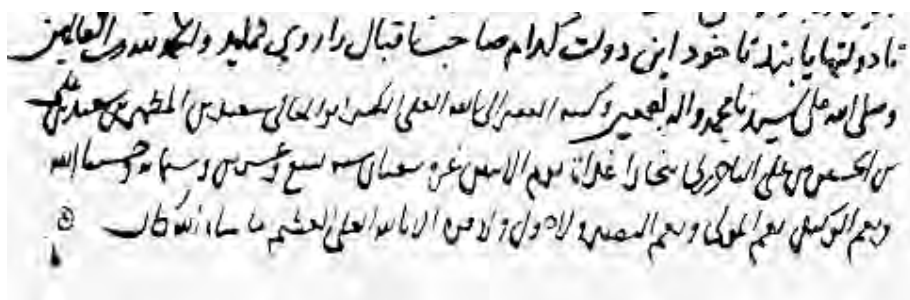 تا دولتها یابند تا خود این دولت کدام صاحب اقبال را روی نماید والحمد لله رب العالمین
وصلی الله علی سیدنا محمد واله اجمعین وکتبه الفقیر الی الله العلی الکبیر ابو المعالی سعید بن المطهر بن سعید بن علی
بن الحسین بن علی الباخرزی ببخارا غداة یوم الاثنین غرة شعبان سنه تسع وعشرین وسبعمایه حسبنا الله
ونعم الوکیل نعم المولی ونعم النصیر ولا حول ولا قوة الا بالله العلی العظیم ما شاء الله کان